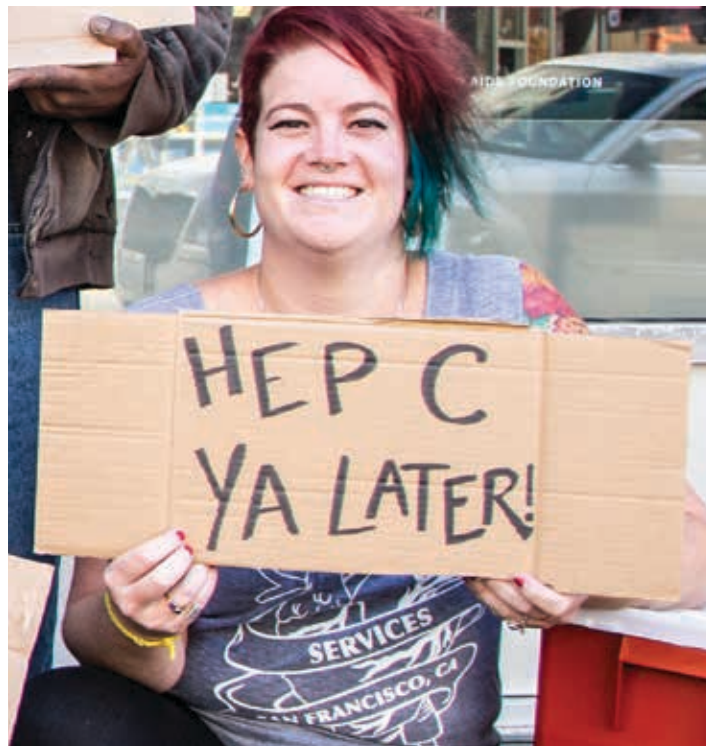 AIDS FOUNDATION
HEP C
YA LATER!
SERVICES
SAN FRANCISCO, CA